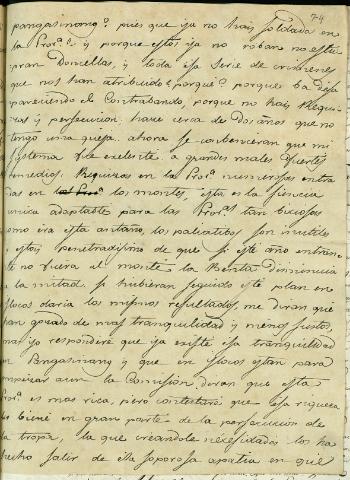 74
pangasinang? pues que ya no hais soldada en
la Prov.ª? y porque estos ya no roban no estu
pran Doncellas, y toda esa serie de crimenes
que nos han atribuido? porque? porque va desa
pareciendo el Contrabando, porque no hais Requi
zas y persecucion. hace cerca de dos años que no
tengo una queja. ahora se convenceran que mi
sistema fue exelente. a grandes males fuertes
remedios. Requizas en la Prov.ª numerosas entra
das en los montes, esta es la ciencia
unica adaptable para las Prov.as tan viciosas
como era esta antaño, los paliativos son inutiles
y estoy penetradisimo de que si este año entran
te no fuera al monte la Renta disminuia
a la mitad. si hubieran seguido este plan en
Ilocos daria los mismos resultados, me diran que
han gozado de mas tranquilidad y menos sustos,
mas yo responderé que ya existe esa tranquilidad
en Pangasinang y que en Ilocos estan para
empezar aun la Comision, diran que esta
Prov.ª es mas rica, pero contestaré que esa riqueza
le viene en gran parte de la persecucion de
la tropa, la que creandole necesidades los ha
hecho salir de esa soporosa apatia en que